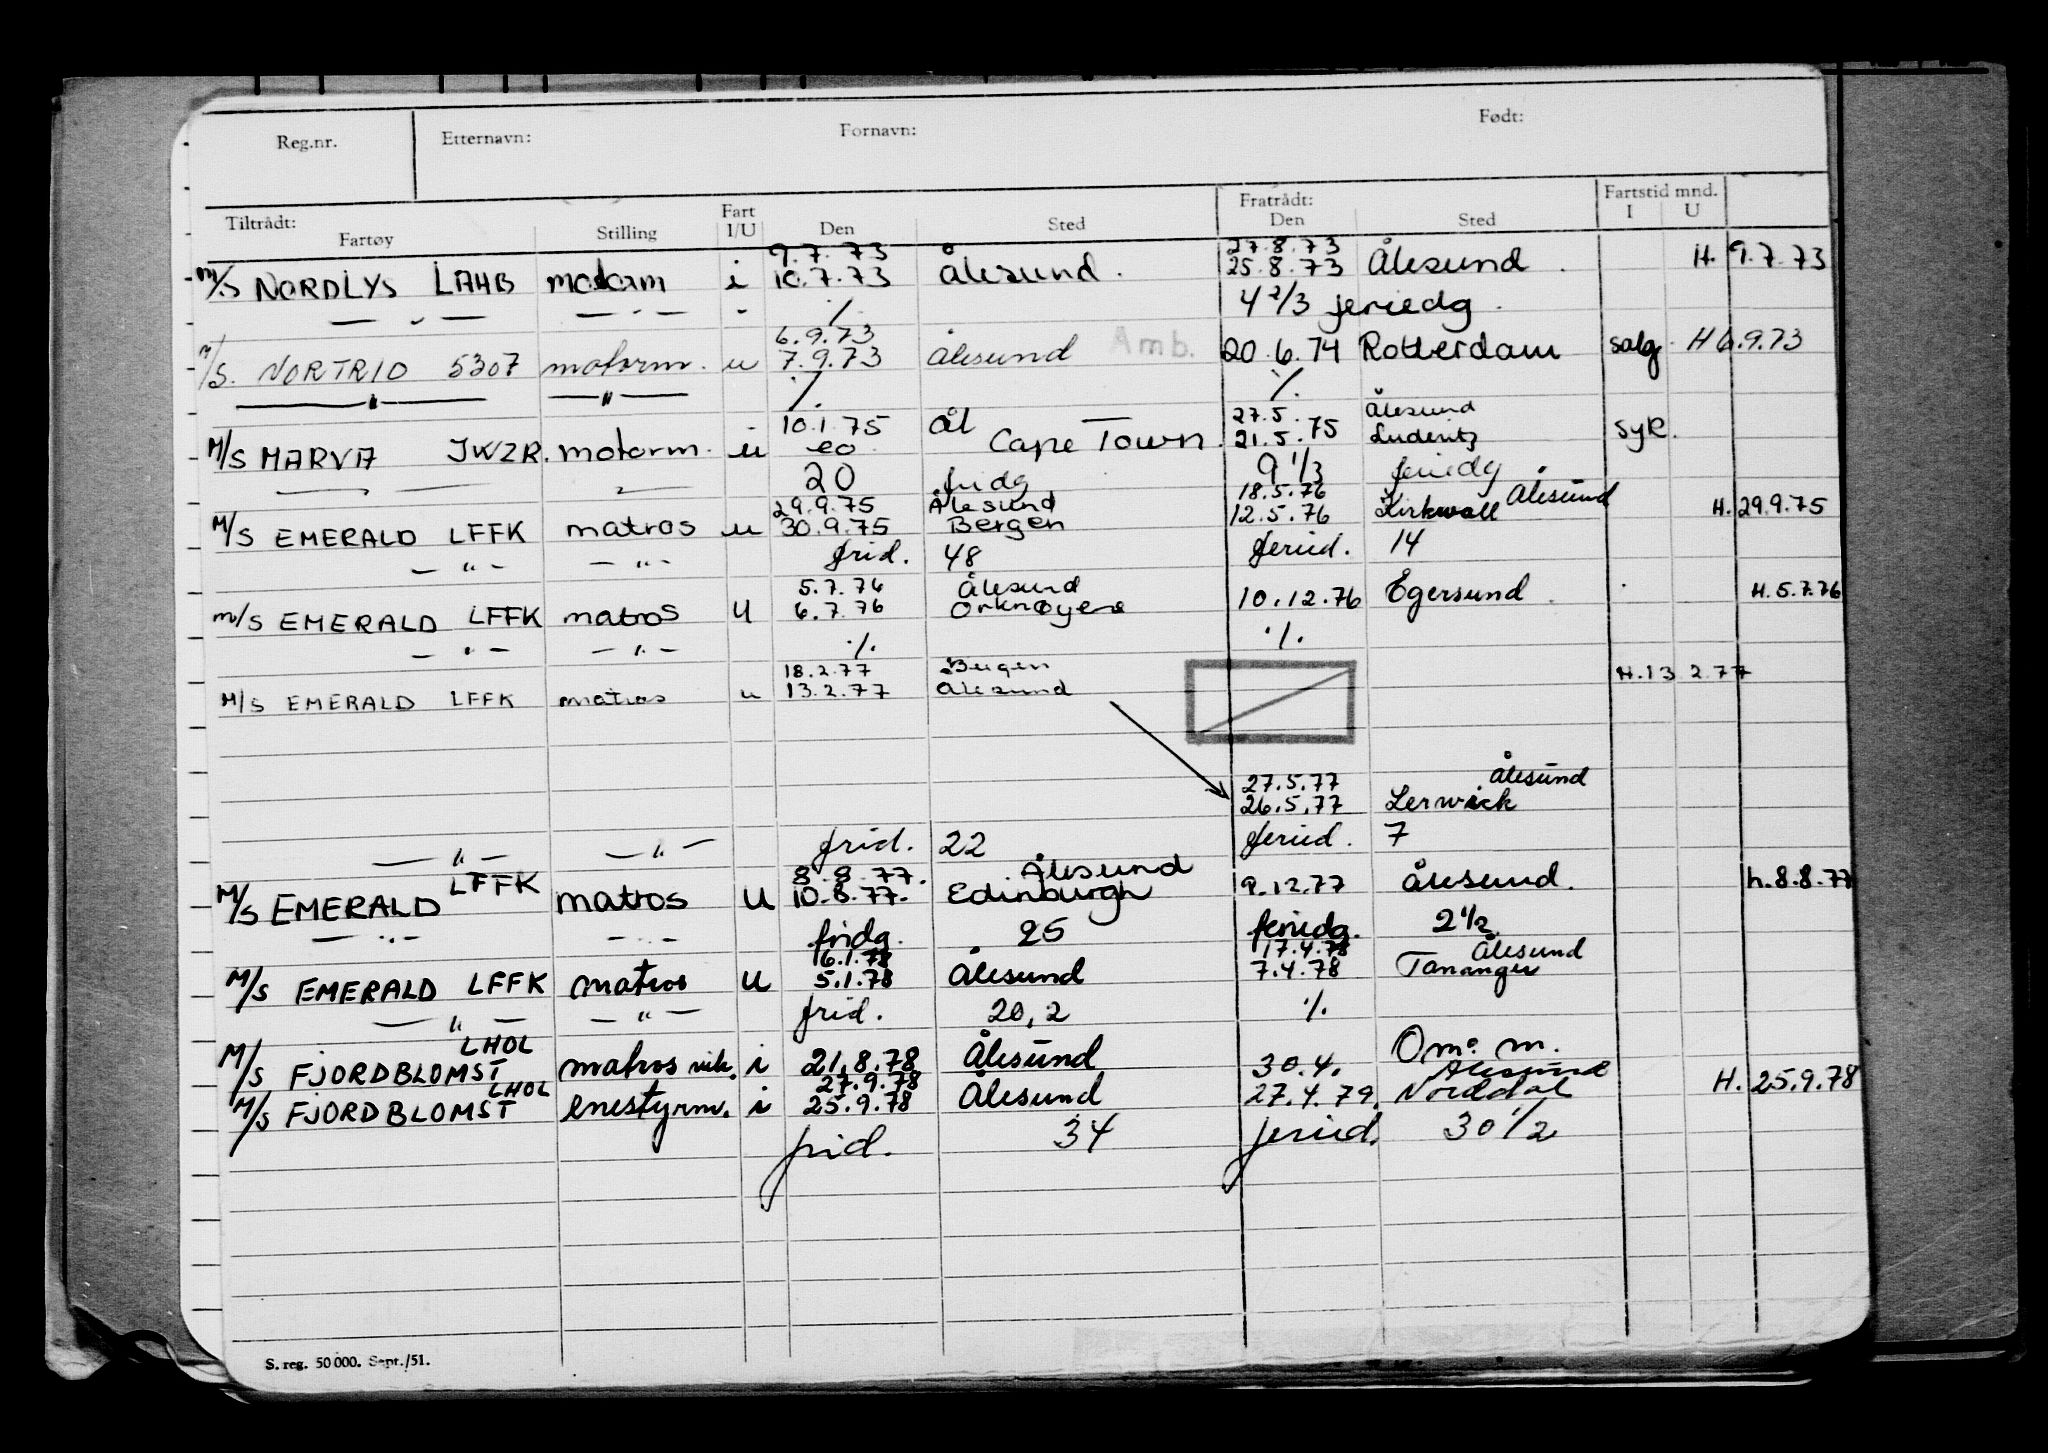 Reg.nr. Etternavn: Fornavn: Født:
Tiltrådt: Fart Fratrådt: Fartstid mnd.
Fartøy Stilling I/U Den Sted Den Sted I U
9.7.73 27.8.73
M/S NORDLYS LAHB motorm i 10.7.73 Ålesund. 25.8.73 Ålesund. H. 9.7.73
— " — — " — - ./. 4 2/3 feriedg.
6.9.73
M/S. NORTRIO 5307 motorm. u 7.9.73 Ålesund Amb. 20.6.74 Rotterdam salg. H 6.9.73
— " — — " — ./. ./.
10.1.75 Ål 27.5. Ålesund
M/S MARVA JWZR. motorm. u eo Cape Town. 21.5.75 Luderitz syk.
— " — — " — 20 fridg 9 1/3 feriedg
29.9.75 Ålesund 18.5.76 Ålesund
M/S EMERALD LFFK matros u 30.9.75 Bergen 12.5.76 Kirkwall H. 29.9.75
— " — — " — frid. 48 feried. 14
5.7.76 Ålesund
M/S EMERALD LFFK matros U 6.7.76 Orknøyene 10.12.76 Egersund. H. 5.7.76
— " — — " — ./. ./.
18.2.77 Bergen
M/S EMERALD LFFK matros u 13.2.77 Ålesund H. 13 2.77
27.5.77 Ålesund
26.5.77 Lerwick
— " — — " — frid. 22 feried. 7
LFFK 8.8.77. Ålesund
M/S EMERALD matros U 10.8.77. Edinburgh 9.12.77 Ålesund. h. 8.8.77
— " — — " — fridg. 25 feriedg. 2 1/2
6.1.78 17.4.78 Ålesund
M/S EMERALD LFFK matros U 5.1.78 Ålesund 7.4.78 Tananger
— " — — " — frid. 20,2 ./.
LHOL Om. m.
M/S FJORDBLOMST matros vik. i 21.8.78 Ålesund 30.4. Ålesund
LHOL 27.9.78
M/S FJORDBLOMST enestyrm. i 25.9.78 Ålesund 27.4.79. Norddal H. 25.9.78
frid. 34 feried. 30 1/2
S. reg. 50 000. Sept./51.